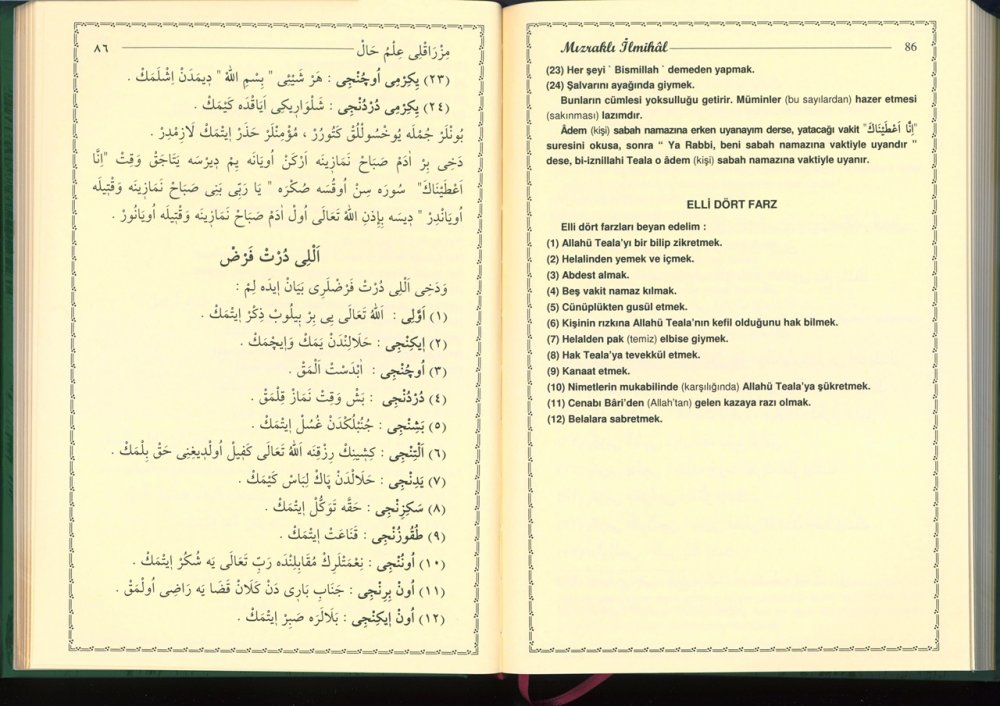 ٨٦ مِزْرَاقْلِى عِلْمُ حَالْ
(٢٣) يِكِرْمِى اُوچُنْجِى : هَرْ شَيْئِى " بِسْمِ اللّٰهْ " دِيمَدَنْ اِشْلَمَكْ .
(٢٤) يِكِرْمِى دُرْدُنْجِى : شَلْوَارِيكِى اَيَاقْدَه كَيْمَكْ .
بُونْلَرْ جُمْلَه يُوخْسُولْلُقْ كَتُورُرْ ، مُؤْمِنْلَرْ حَذَرْ اِيتْمَكْ لَازِمْدِرْ .
دَخِى بِرْ اٰدَمْ صَبَاحْ نَمَازِينَه اَرْكَنْ اُويَانَه يِمْ دِيرْسَه يَتَاجَقْ وَقِتْ "اِنَّا
اَعْطَيْنَاكَ" سُورَه سِنْ اُوقُسَه صُكْرَه " يَا رَبِّى بَنِى صَبَاحْ نَمَازِينَه وَقْتِيلَه
اُويَانْدِرْ " دِيسَه بِاِذْنِ اللّٰهُ تَعَالَى اُولْ اٰدَمْ صَبَاحْ نَمَازِينَه وَقْتِيلَه اُويَانُورْ .
اَلْلِى دُرْتْ فَرْضْ
وَدَخِى اَلْلِى دُرْتْ فَرْضْلَرِى بَيَانْ اِيدَه لِمْ :
(١) اَوَّلِى : اَللّٰهُ تَعَالَى يِى بِرْ بِيلُوبْ ذِكْرْ اِيتْمَكْ .
(٢) اِيكِنْجِى : حَلَالِنْدَنْ يَمَكْ وَاِيچْمَكْ .
(٣) اُوچُنْجِى : اٰبْدَسْتْ اَلْمَقْ .
(٤) دُرْدُنْجِى : بَشْ وَقِتْ نَمَازْ قِلْمَقْ .
(٥) بَشِنْجِى : جُنُبْلُكْدَنْ غُسُلْ اِيتْمَكْ .
(٦) اَلْتِنْجِى : كِشِينِكْ رِزْقِنَه اَللّٰهُ تَعَالَى كَفِيلْ اُولْدِيغِنِى حَقْ بِلْمَكْ .
(٧) يَدِنْجِى : حَلَالْدَنْ پَاكْ لِبَاسْ كَيْمَكْ .
(٨) سَكِزِنْجِى : حَقَّه تَوَكُّلْ اِيتْمَكْ .
(٩) طُقُوزُنْجِى : قَنَاعَتْ اِيتْمَكْ .
(١٠) اُونُنْجِى : نِعْمَتْلَرِكْ مُقَابِلِنْدَه رَبِّ تَعَالَى يَه شُكُرْ اِيتْمَكْ .
(١١) اُونْ بِرِنْجِى : جَنَابِ بَارِى دَنْ كَلَانْ قَضَا يَه رَاضِى اُولْمَقْ .
(١٢) اُونْ اِيكِنْجِى : بَلَالَرَه صَبِرْ اِيتْمَكْ .
Mızraklı İlmihâl 86
(23) Her şeyi ` Bismillah ` demeden yapmak.
(24) Şalvarını ayağında giymek.
Bunların cümlesi yoksulluğu getirir. Müminler (bu sayılardan) hazer etmesi
(sakınması) lazımdır.
Âdem (kişi) sabah namazına erken uyanayım derse, yatacağı vakit "اِنَّا اَعْطَيْنَاكَ"
suresini okusa, sonra “ Ya Rabbi, beni sabah namazına vaktiyle uyandır ”
dese, bi-iznillahi Teala o âdem (kişi) sabah namazına vaktiyle uyanır.
ELLİ DÖRT FARZ
Elli dört farzları beyan edelim :
(1) Allahü Teala’yı bir bilip zikretmek.
(2) Helalinden yemek ve içmek.
(3) Abdest almak.
(4) Beş vakit namaz kılmak.
(5) Cünüplükten gusül etmek.
(6) Kişinin rızkına Allahü Teala’nın kefil olduğunu hak bilmek.
(7) Helalden pak (temiz) elbise giymek.
(8) Hak Teala’ya tevekkül etmek.
(9) Kanaat etmek.
(10) Nimetlerin mukabilinde (karşılığında) Allahü Teala’ya şükretmek.
(11) Cenabı Bâri’den (Allah’tan) gelen kazaya razı olmak.
(12) Belalara sabretmek.